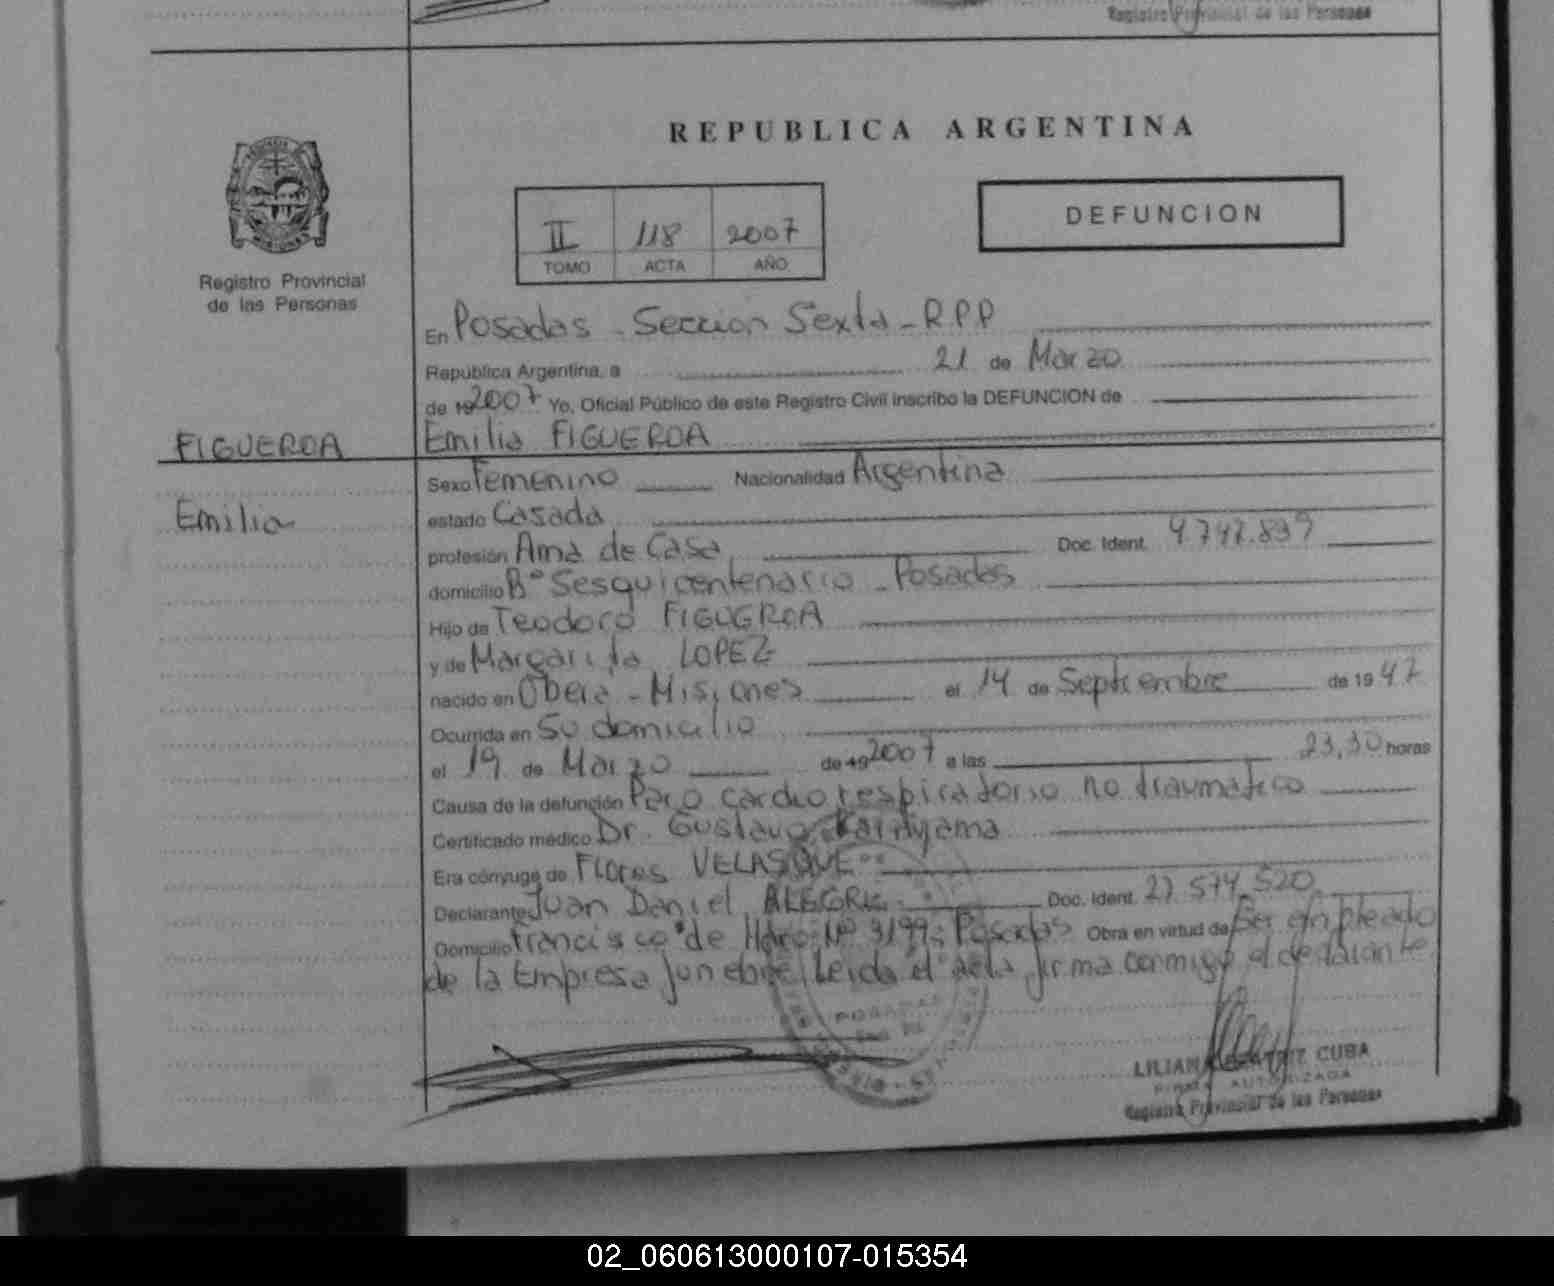 Registro Provincial de las Personas
REPUBLICA ARGENTINA
DEFUNCION
II 118 2007
TOMO ACTA AÑO
Registro Provincial
de las Personas
En Posadas - Seccion Sexta - R.P.P
República Argentina, a 21 de Marzo
de 19 2007 Yo, Oficial Público de este Registro Civil inscribo la DEFUNCION de
FIGUEROA
Emilia FIGUEROA
Sexo Femenino Nacionalidad Argentina
Emilia
estado Casada
profesión Ama de Casa Doc. Ident.
domicilio Bº Sesquicentenario - Posadas
Hijo de Teodoro FIGUEROA
y de Margarita LOPEZ
nacido en Oberá - Misiones el 14 de Septiembre de 19 47
Ocurrida en Su domicilio
el 19 de Marzo de 19 2007 a las 23,30 horas
Causa de la defunción Paro cardio respiratorio no traumatico
Certificado médico Dr. Gustavo
Era cónyuge de Flores VELASQUE
Declarante Juan Daniel ALEGRE Doc. Ident. 22.574.520
Domicilio Francisco de Haro Nº 3199 - Posadas Obra en virtud de Ser empleado
de la Empresa funebre Leida el acta firma conmigo el declarante
LILIANA BEATRIZ CUBA
FIRMA AUTORIZADA
Registro Provincial de las Personas
02_060613000107-015354